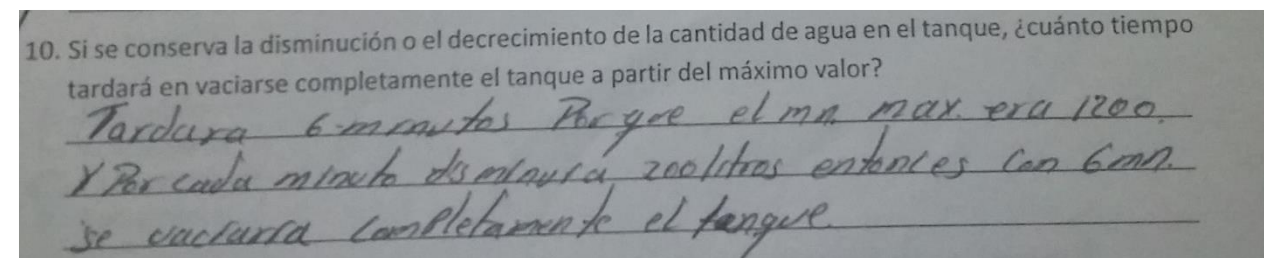 10. Si se conserva la disminución o el decrecimiento de la cantidad de agua en el tanque, ¿cuánto tiempo
tardará en vaciarse completamente el tanque a partir del máximo valor?
Tardara 6 minutos Porque el mn max. era 1200.
Y Por cada minuto disminuira 200 litros entonces Con 6 mn.
se vaciaria Completamente el tanque.